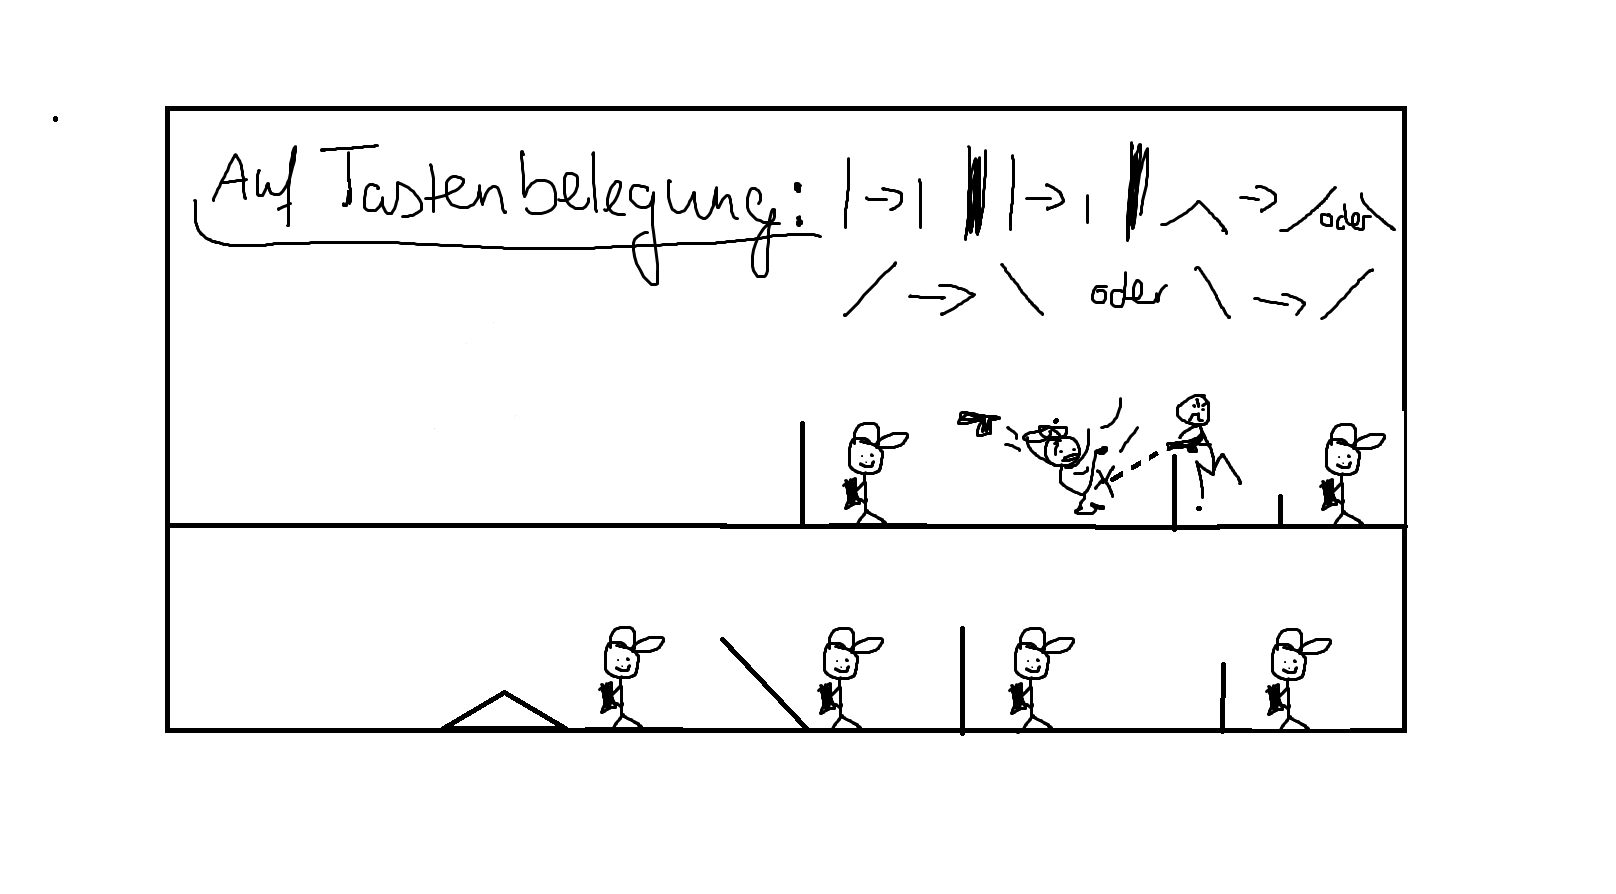 Auf Tastenbelegung:
oder
oder